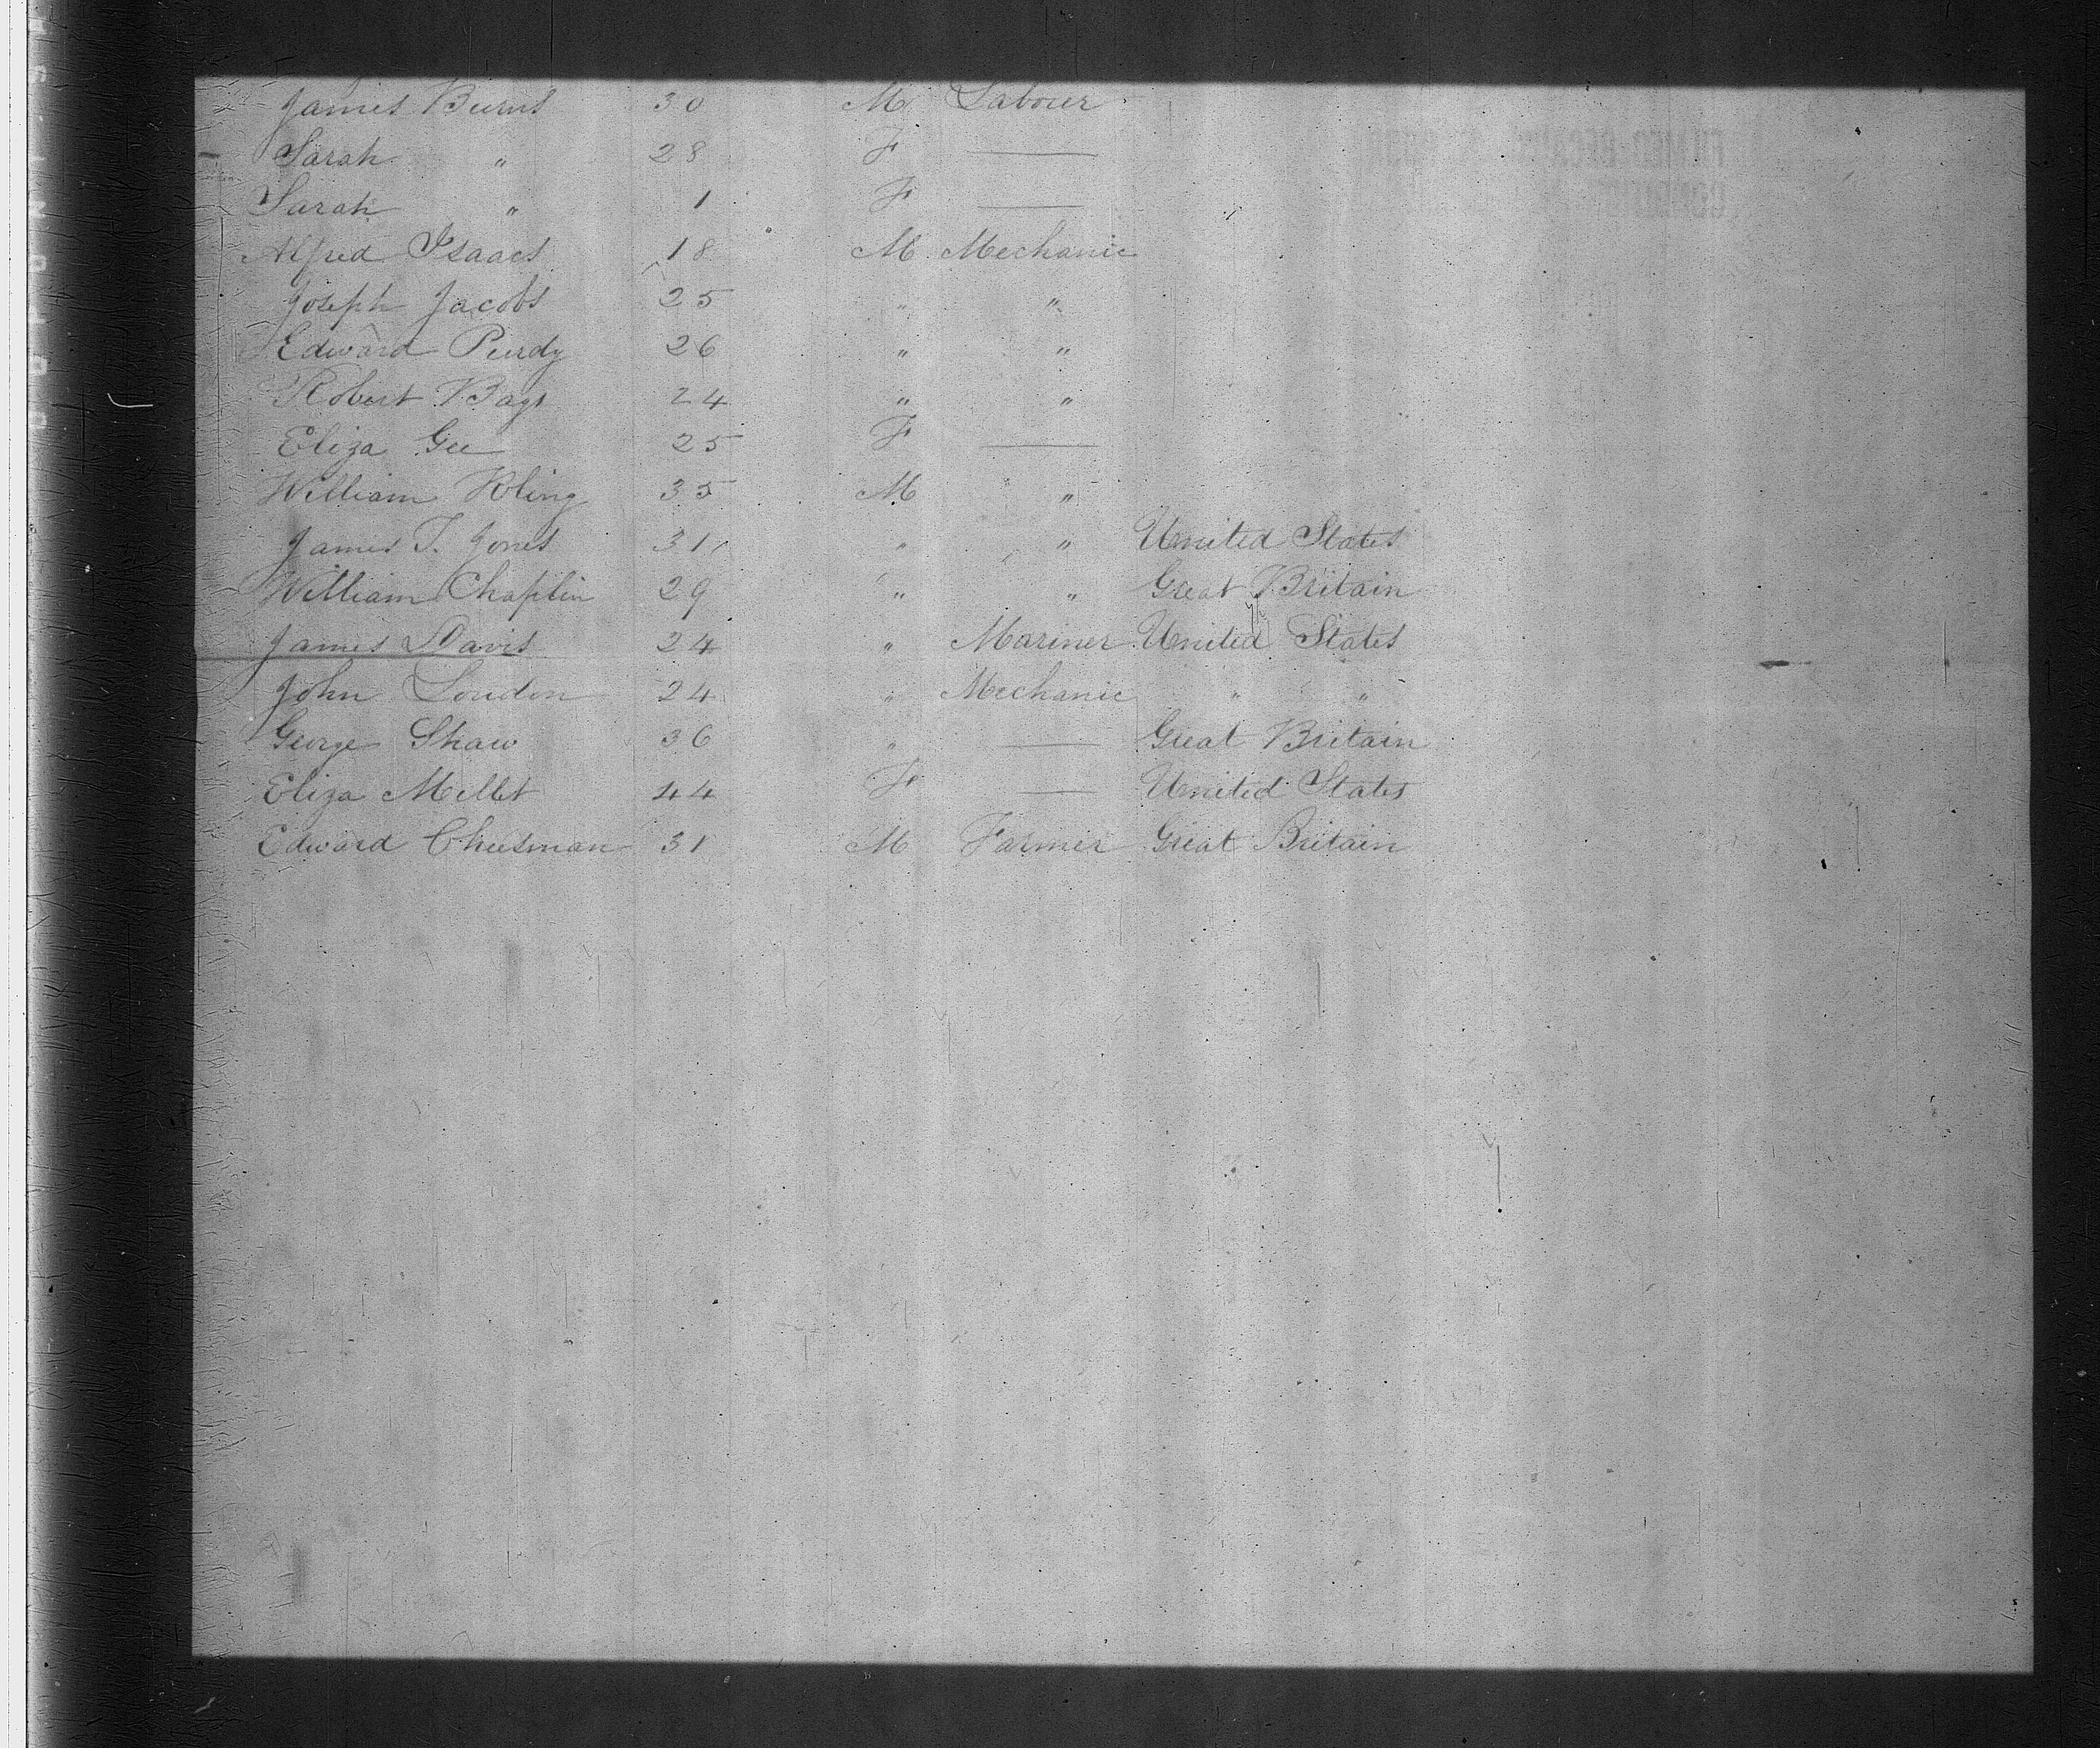 James Burns 30 M Labour
Sarah " 28 F —
Sarah " 1 F —
Alfred Isaacs 18 M Mechanic
Joseph Jacobs 25 " "
Edward Purdy 26 " "
Robert Bags 24 " "
Eliza Gee 25 F —
William Kling 35 M "
James T. Jones 31 " " United States
William Chaplin 29 " " Great Britain
James Davis 24 " Mariner United States
John Loudon 24 " Mechanic " "
George Shaw 36 " — Great Britain
Eliza Mellet 44 F — United States
Edward Cheesman 31 M Farmer Great Britain